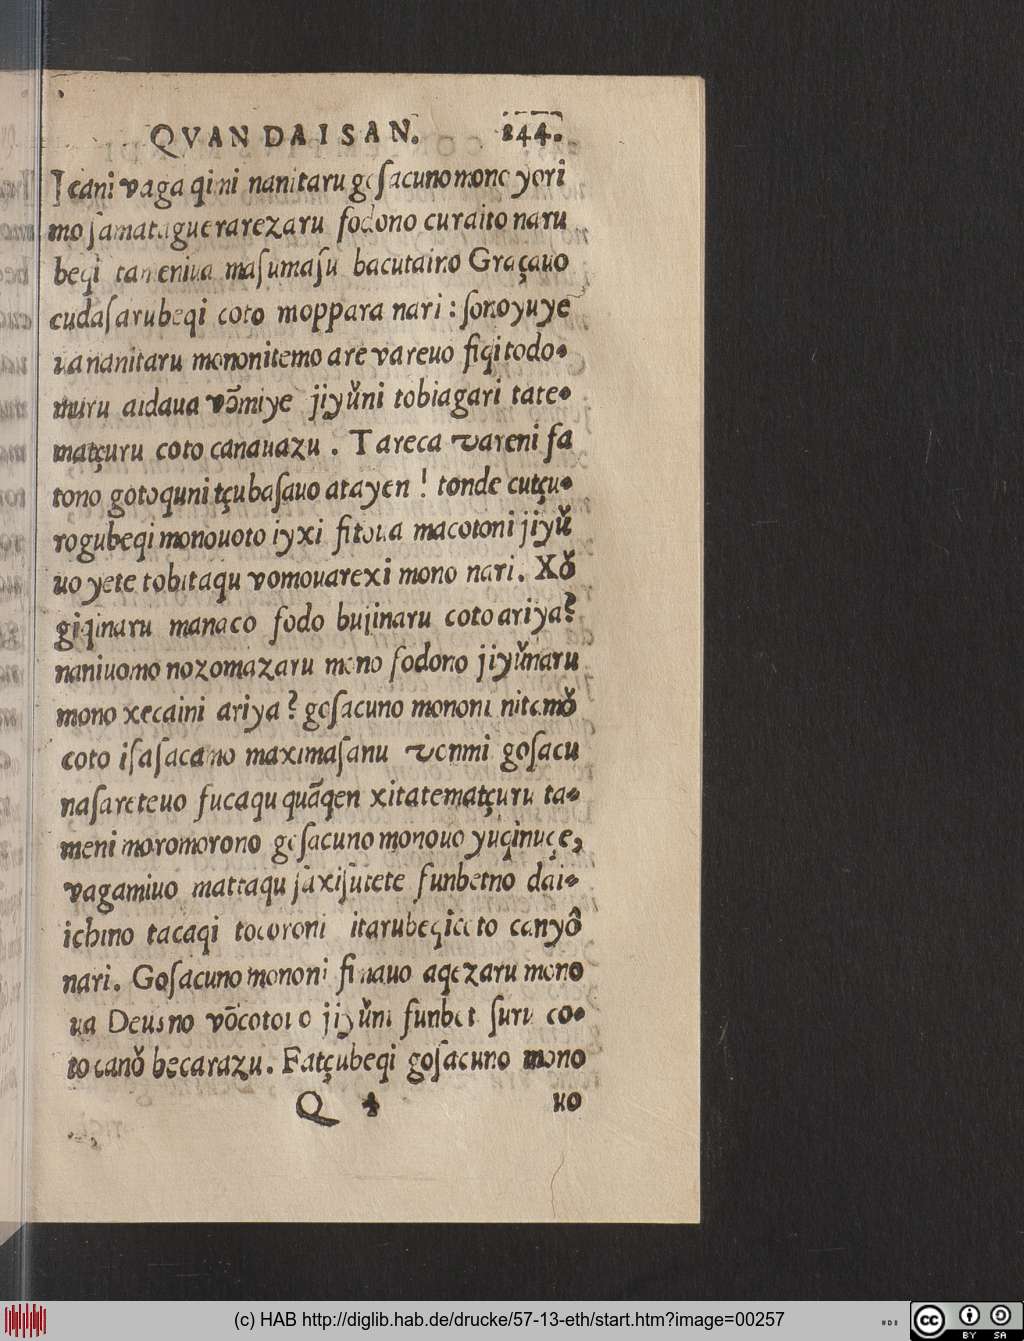 QVAN DAI SAN. 244.
Icani vaga qini nanitaru goſacuno mono yori
mo jamataguerarezaru fodono curaito naru
beqi tameniua maſumaſu bacutaino Graçauo
cudaſarubeqi coto moppara nari : ſonoyuye
ua nanitaru mononitemo are vareuo fiqitodo-
muru aidaua võmiye jiyǔni tobiagari tate-
matçuru coto canauazu . Tareca vareni fa
tono gotoquni tçubaſauo atayen ! tonde cutçu-
rogubeqi monouoto iyxi fitoua macotoni jiyǔ
uo yete tobitaqu vomouarexi mono nari. Xǒ
giqinaru manaco fodo bujinaru coto ariya?
naniuomo nozomazaru mono fodono jiyǔnaru
mono xecaini ariya ? goſacuno mononi nitemǒ
coto iſaſacamo maximaſanu vonmi goſacu
naſareteuo fucaqu quãqen xitatematçuru ta-
meni moromorono goſacuno monouo yuqinuqe,
vagamiuo mattaqu jaxiſutete funbetno dai-
ichino tacaqi tocoroni itarubeqi coto canyô
nari. Goſacuno mononi fimauo aqezaru mono
ua Deus no võcotouo jiyǔni funbet ſuru co-
to canǒ becarazu. Fatçubeqi goſacuno mono
Q 4 uo
(c) HAB http://diglib.hab.de/drucke/57-13-eth/start.htm?image=00257
cc BY SA